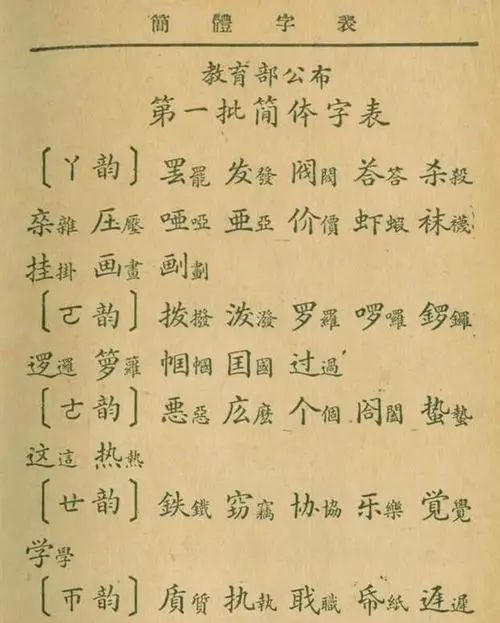 簡體字表
教育部公布
第一批简体字表
〔ㄚ韵〕 罢罷 发發 阀閥 荅答 杀殺
杂雜 压壓 哑啞 亜亞 价價 虾蝦 袜襪
挂掛 画畫 劃
〔ㄛ韵〕 拨撥 泼潑 罗羅 啰囉 锣鑼
逻邏 箩籮 帼幗 国國 过過
〔ㄜ韵〕 恶惡 庅麼 个個 阁閣 蛰蟄
这這 热熱
〔ㄝ韵〕 鉄鐵 窃竊 协協 乐樂 覚覺
学學
〔ㄭ韵〕 质質 执執 职職 帋紙 遅遲